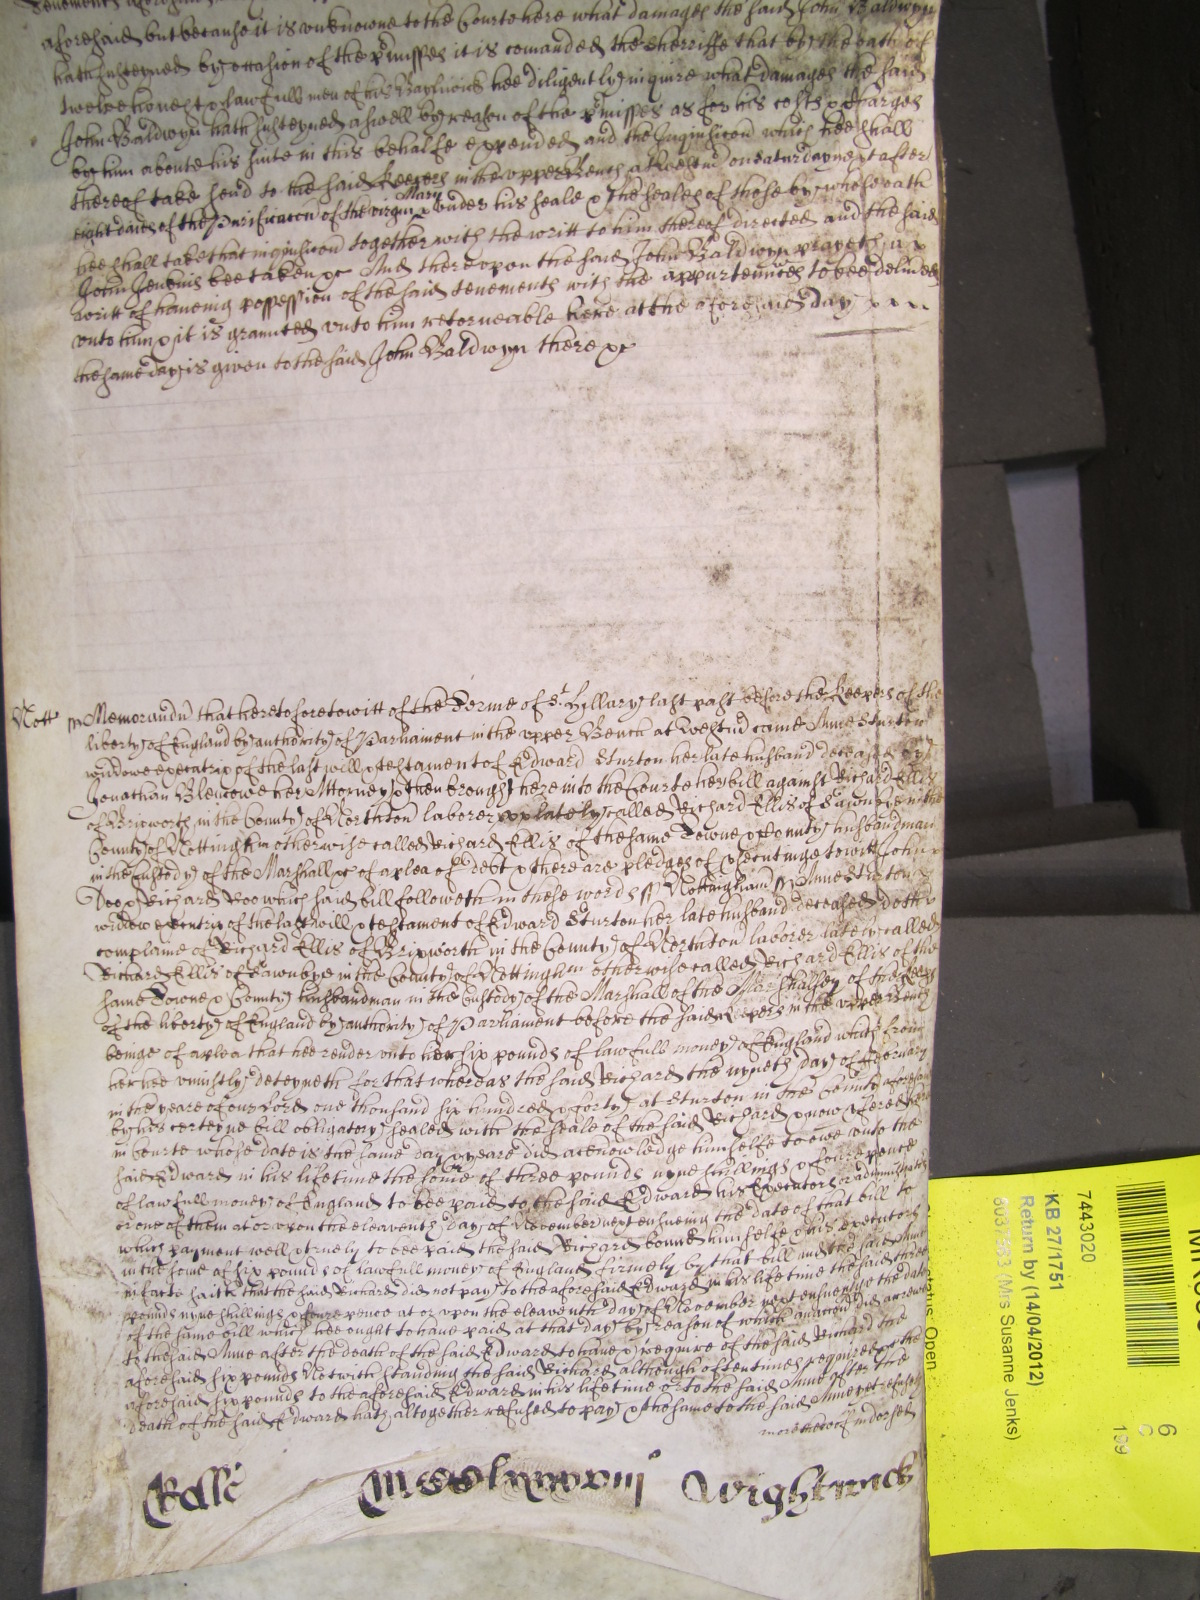 aforesaid but because it is unknowne to the Courte here what damages the said John Baldwyn
hath susteyned by occasion of the p'misses it is comanded the Sherriffe that by the oath of
twelve honest & lawfull men of his Bayliwick hee diligently inquire what damages the said
John Baldwyn hath susteyned aswell by reason of the p'misses as for his costs & charges
by him aboute his suite in this behalfe expended and the Inquisicon which hee shall
thereof take send to the said Keepers in the upper Bench at Westm' on saturday next after
eight daies of the Purificacon of the virgin Mary under his seale & the seales of those by whose oath
hee shall take that inquisicon together with the writt to him thereof directed and the said
John Jenkins bee taken &c And thereupon the said John Baldwyn prayeth a
writt of haveing possession of the said tenements with the appurtenn'ces to bee delivered
unto him & it is graunted unto him retorneable here at the aforesaid day
the same day is given to the said John Baldwyn there &c
Nott' Memorand' that heretofore towitt of the Terme of St Hyllary last past before the Keepers of the
liberty of England by authority of Parliament in the upper Bench at Westm' came Anne Sturton
widdowe executrix of the last will & testament of Edward Sturton her late husband deceased by
Jonathan Blencowe her Attorney & then brought here into the Courte her bill against Richard Ellis
of Brixworth in the County of Northton laborer lately called Richard Ellis of Sawnbye in the
County of Nottingham otherwise called Richard Ellis of the same Towne & County husbandman
in the custody of the Marshall &c of a plea of debt & there are pledges of p'secutinge towitt John
Doo & Richard Roo which said bill followeth in these words ss Nottingham ss Anne Sturton
widdowe executrix of the last will & testament of Edward Sturton her late husband deceased doth
complaine of Richard Ellis of Brixworth in the County of Northton laborer lately called
Richard Ellis of Sawnbye in the County of Nottingham otherwise called Richard Ellis of the
same Towne & County husbandman in the Custody of the Marshall of the Marshalsey of the Keeps
of the liberty of England by authority of Parliament before the said Keepers in the upper Bench
beinge of a plea that hee render unto her six pounds of lawfull money of England which from
her hee uniustly deteyneth for that whereas the said Richard the nyneth day of February
in the yeare of our Lord one thousand six hundred & forty at Sturton in the County aforesaid
by his certeyne bill obligatory sealed with the seale of the said Richard & now shewed here
in Courte whose date is the same day & yeare did acknowledge himselfe to owe unto the
said Edward in his lifetime the some of three pounds nyne shillings & foure pence
of lawfull money of England to bee paid to the said Edward his Executors or administrators
or one of them at or upon the eleaventh day of November next ensueing the date of that bill to
which payment well & truely to bee paid the said Richard bound himselfe & his executors
in the some of six pounds of lawfull money of England firmely by that bill and the said Anne
in facte saith that the said Richard did not pay to the aforesaid Edward in his life time the said three
pounds nyne shillings & foure pence at or upon the eleaventh day of November next ensueinge the date
of the same bill which hee ought to have paid at that day by reason of which an accon did accrewe
to the said Anne after the death of the said Edward to have & require of the said Richard the
aforesaid six pounds Notwithstanding the said Richard although often times required the
aforesaid six pounds to the aforesaid Edward in his life time or to the said Anne after the
death of the said Edward hath altogether refused to pay & the same to the said Anne yet refuseth
more thereof indorsed
Rolle Wightwick
7443020
KB 27/1751
Return by (14/04/2012)
(Mrs Susanne Jenks)
Status Open
6
C
199